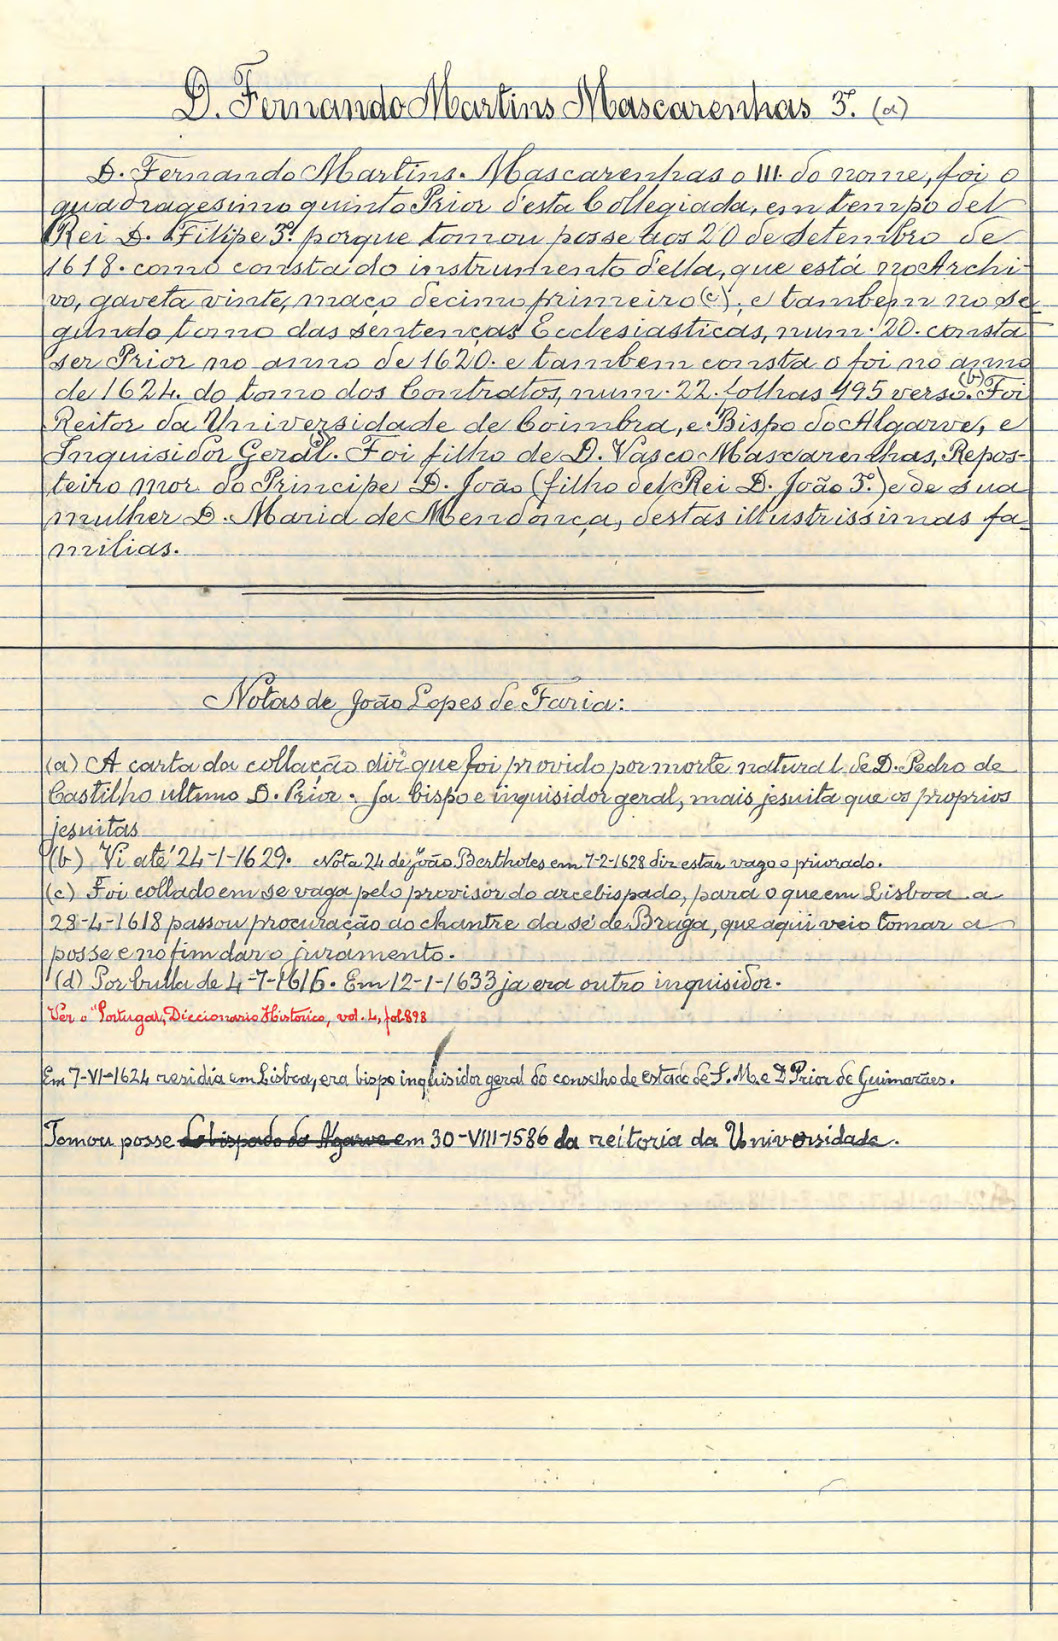 D. Fernando Martins Mascarenhas 3º. (a)
D. Fernando Martins. Mascarenhas o III. do nome, foi o
quadragesimo quinto Prior d'esta Collegiada, em tempo del
Rei D. Filipe 3º. porque tomou posse aos 20 de Setembro de
1618. como consta do instrumento della, que está no Archi-
vo, gaveta vinte, maço decimo primeiro (c); e tambem no se-
gundo tomo das sentenças Ecclesiasticas, num. 20. consta
ser Prior no anno de 1620. e tambem consta o foi no anno
de 1624. do tomo dos Contratos, num. 22. folhas 495 verso. (b) Foi
Reitor da Universidade de Coimbra, e Bispo do Algarve, e
Inquisidor Geral. (d) Foi filho de D. Vasco Mascarenhas, Repos-
teiro mor do Principe D. João (filho del Rei D. João 3º.) e de sua
mulher D. Maria de Mendonça, destas illustrissimas fa-
milias.
Notas de João Lopes de Faria:
(a) A carta da collação diz que foi provido por morte natural de D. Pedro de
Castilho ultimo D. Prior. Ja bispo e inquisidor geral, mais jesuita que os proprios
jesuitas
(b) Vi até 24-1-1629. Nota 24 de João Bertholes em 7-2-1628 diz estar vago o priorado.
(c) Foi collado em se vaga pelo provisor do arcebispado, para o que em Lisboa a
28-4-1618 passou procuração ao chantre da sé de Braga, que aqui veio tomar a
posse e no fim dar o juramento.
(d) Por bulla de 4-7-1616. Em 12-1-1633 ja era outro inquisidor.
Ver o "Portugal, Diccionario Historico, vol. 4, fol. 898
Em 7-VI-1624 residia em Lisboa, era bispo inquisidor geral do conselho de estado de S. M. e D Prior de Guimarães.
Tomou posse do bispado do Algarve em 30-VIII-1586 da reitoria da Universidade.